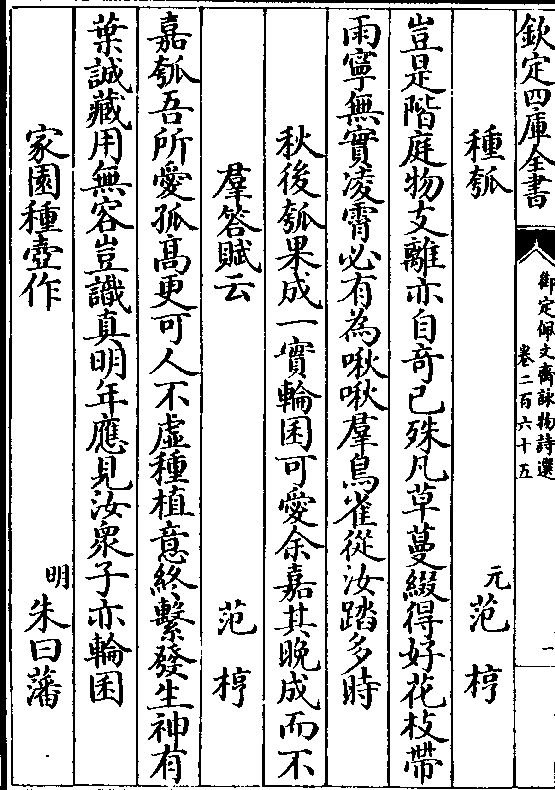 欽定四庫全書
御定佩文齋詠物詩選
卷二百六十五
一
種瓠
元
范梈
豈是階庭物支離亦自竒已殊凡草蔓綴得好花枝帶
雨寧無實凌霄必有為啾啾羣鳥雀從汝踏多時
秋後瓠果成一實輪囷可愛余嘉其晚成而不
羣答賦云
范梈
嘉瓠吾所愛孤髙更可人不虛種植意終繫發生神有
葉誠藏用無容豈識真明年應見汝衆子亦輪囷
家園種壺作
明
朱曰藩